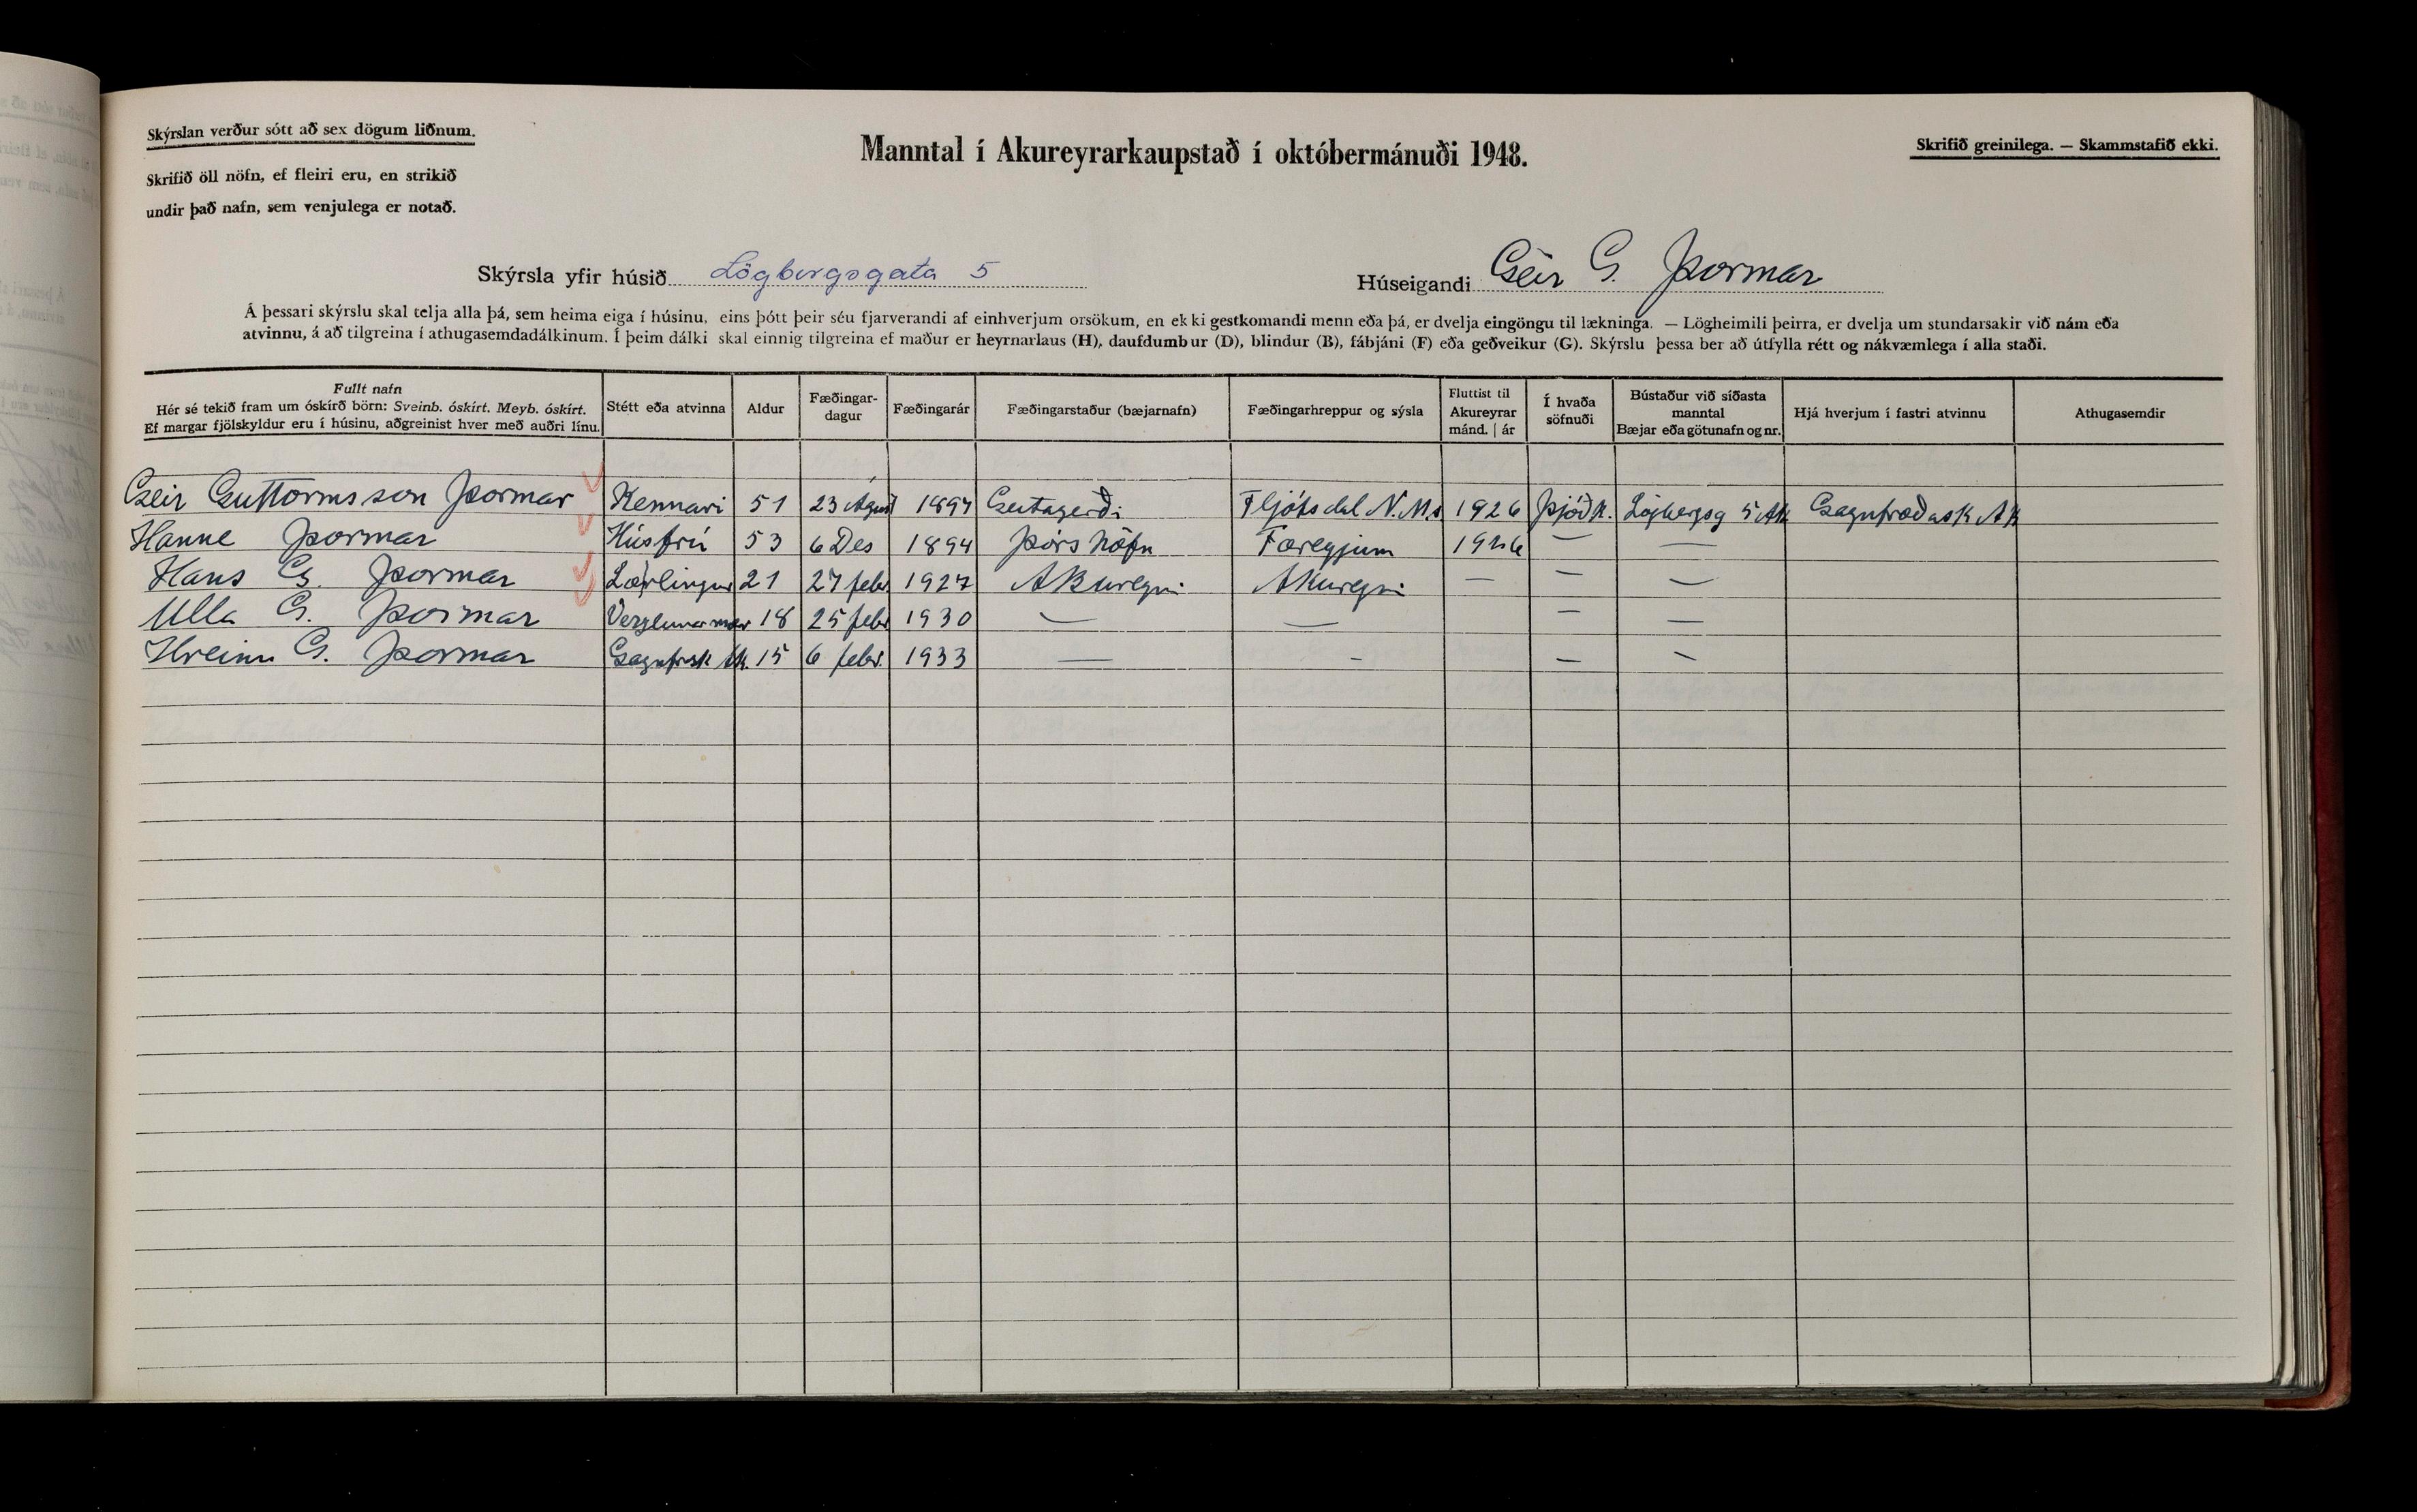 Skýrslan verður sótt að sex dögum liðnum.
Skrifið öll nöfn, ef fleiri eru, en strikið
undir það nafn, sem venjulega er notað.
Manntal í Akureyrarkaupstað í októbermánuði 1948.
Skrifið greinilega. — Skammstafið ekki.
Skýrsla yfir húsið Lögbergsgata 5
Húseigandi Geir G. Þormar
Á þessari skýrslu skal telja alla þá, sem heima eiga í húsinu, eins þótt þeir séu fjarverandi af einhverjum orsökum, en ekki gestkomandi menn eða þá, er dvelja eingöngu til lækninga. — Lögheimili þeirra, er dvelja um stundarsakir við nám eða
atvinnu, á að tilgreina í athugasemdadálkinum. Í þeim dálki skal einnig tilgreina ef maður er heyrnarlaus (H), daufdumbur (D), blindur (B), fábjáni (F) eða geðveikur (G). Skýrslu þessa ber að útfylla rétt og nákvæmlega í alla staði.
Fullt nafn
Hér sé tekið fram um óskírð börn: Sveinb. óskírt. Meyb. óskírt.
Ef margar fjölskyldur eru í húsinu, aðgreinist hver með auðri línu.
Stétt eða atvinna
Aldur
Fæðingar-
dagur
Fæðingarár
Fæðingarstaður (bæjarnafn)
Fæðingarhreppur og sýsla
Fluttist til
Akureyrar
mánd. | ár
Í hvaða
söfnuði
Bústaður við síðasta
manntal
Bæjar eða götunafn og nr.
Hjá hverjum í fastri atvinnu
Athugasemdir
Geir Guttormsson Þormar Kennari 51 23 Águst 1897 Geitagerði Fljótsdal N.M.s 1926 Þjóðk. Lögbergsg 5 Ak Gagnfræðask Ak
Hanne Þormar Húsfrú 53 6 Des 1894 Þórshöfn Færeyjum 1926 — —
Hans G. Þormar Lærlingur 21 27 febr 1927 Akureyri Akureyri — — —
Ulla G. Þormar 18 25 febr 1930 — — — —
Hreinn G. Þormar Gagnfrsk Ak. 15 6 febr. 1933 — - — —